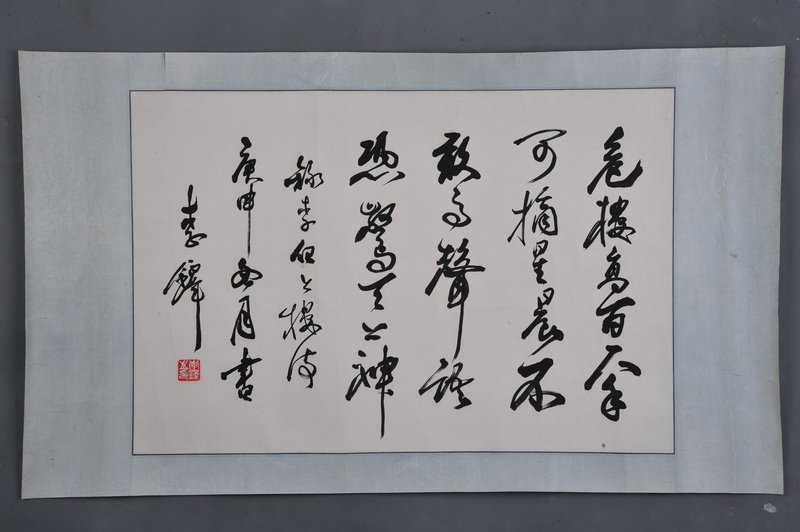 危樓高百尺手
可摘星晨不
敢高聲語
恐驚天上神
錄李伯上樓詩
庚申冬月書
李鐸